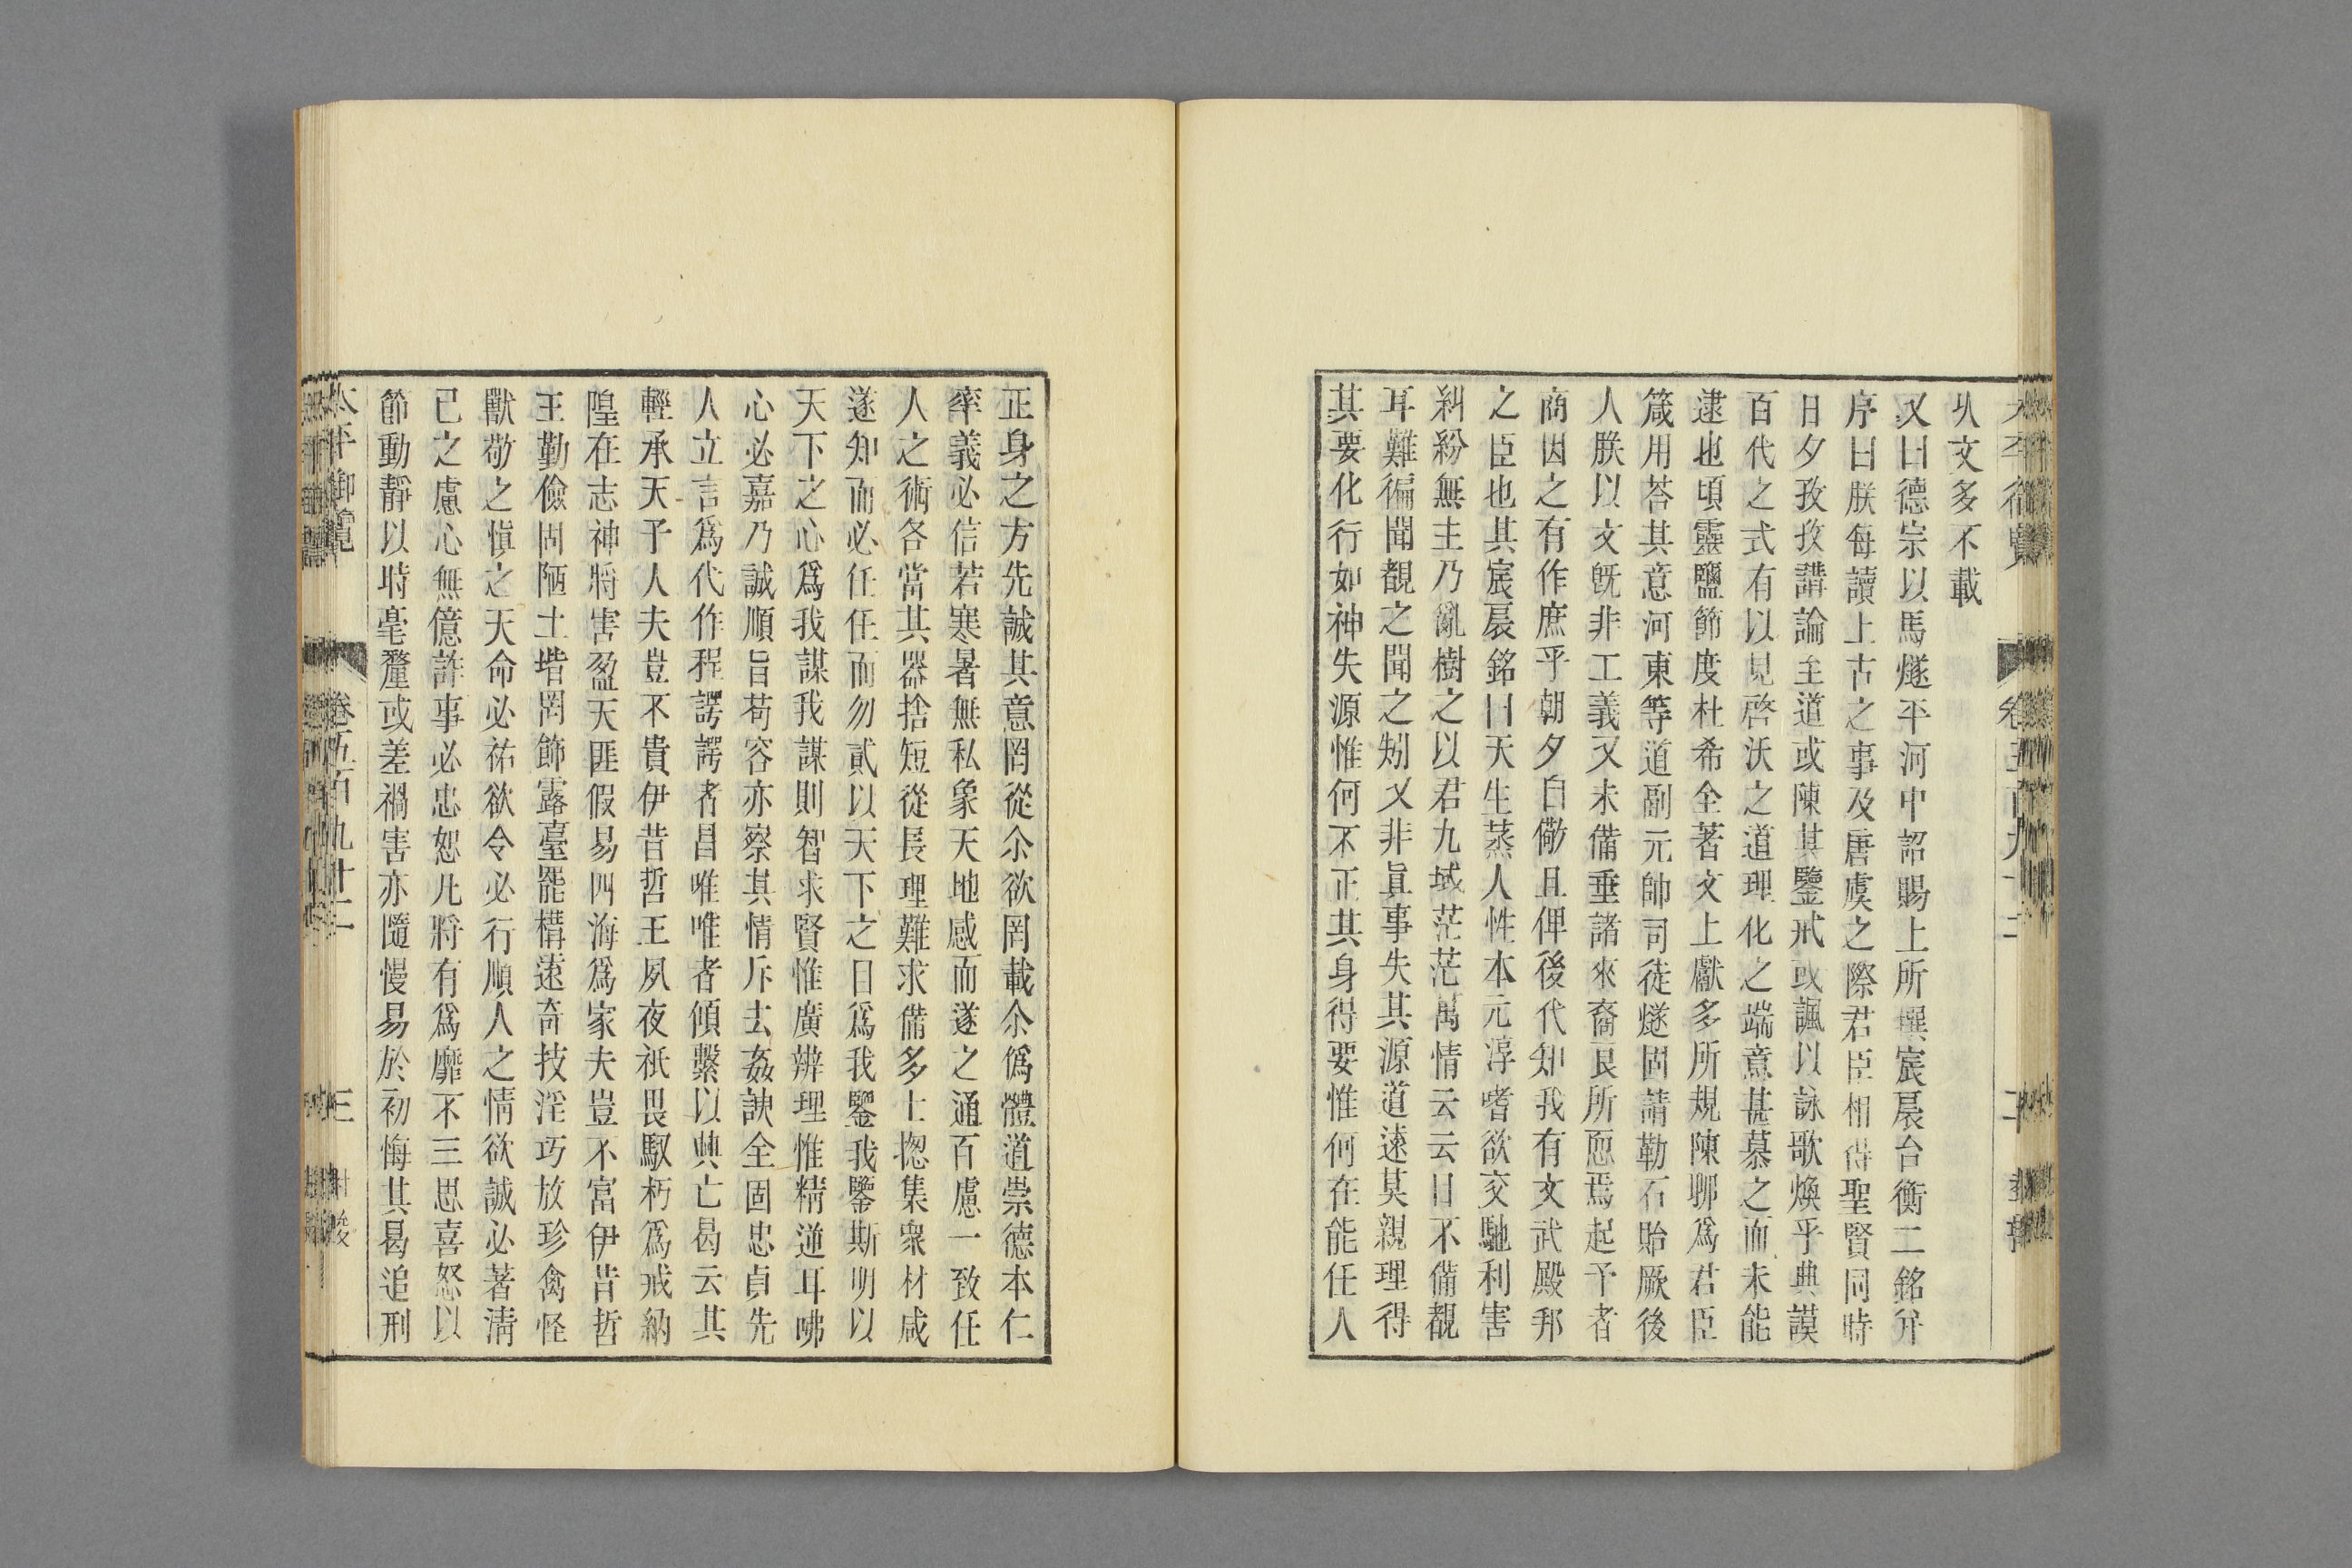 㳄文多不載
又曰德宗以馬燧平河中詔賜上所撰宸扆台衡二銘并
序曰朕每讀上古之事及唐虞之際君臣相得聖賢同時
日夕孜孜講論至道或陳其鑒戒或諷以詠歌煥乎典謨
百代之式有以見啓沃之道理化之端意甚慕之而未能
逮也頃靈鹽節度杜希全著文上獻多所規陳聊爲君臣
箴用荅其意河東等道副元帥司徒燧固請勒石貽厥後
人朕以文旣非工義又未備垂諸來裔良所恧焉起予者
商因之有作庶乎朝夕自儆且俾後代知我有文武殿邦
之臣也其宸扆銘曰天生蒸人性本元淳嗜欲交馳利害
糾紛無主乃亂樹之以君九域茫茫萬情云云目不備覩
耳難徧聞覩之聞之矧又非眞事失其源道遠莫親理得
其要化行如神失源惟何不正其身得要惟何在能任人
正身之方先誠其意罔從尒欲罔載尒僞體道崇德本仁
率義必信若寒暑無私象天地感而遂之通百慮一致任
人之術各當其器捨短從長理難求備多士揔集衆材咸
遂知而必任任而勿貳以天下之目爲我鑒我鑒斯明以
天下之心爲我謀我謀則智求賢惟廣辨理惟精逆耳咈
心必嘉乃誠順旨苟容亦察其情斥去姦諛全固忠貞先
人立言爲代作程諤諤者昌唯唯者傾繫以興亡曷云其
輕承天子人夫豈不貴伊昔哲王夙夜祇畏馭朽爲戒納
隍在志神將害盈天匪假易四海爲家夫豈不富伊昔哲
王勤儉固陋土堦罔飾露臺罷構遠奇技淫巧放珍禽怪
獸敬之愼之天命必祐欲令必行順人之情欲誠必著淸
已之慮心無億詐事必忠恕凡將有爲靡不三思喜怒以
節動靜以時毫釐或差禍害亦隨慢易於初悔其曷追刑
太平御覽 卷五百九十二 三